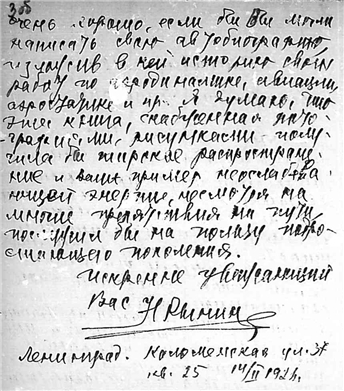 300
очень хорошо, если бы Вы могли
написать свою автобиографию,
изложив в ней историю своих
работ по аэродинамике, авиации,
аэронавтике и пр. Я думаю, что
эта книга, снабженная фото-
графиями, рисунками полу-
чила бы широкое распростране-
ние и ваш пример неослабева-
ющей энергии, несмотря на
многие препятствия на пути
послужил бы на пользу подро-
стающего поколения.
Искренне уважающий
Вас Н Рынин
Ленинград. Коломенская ул. 37
кв. 25 14/IV 1926 г.